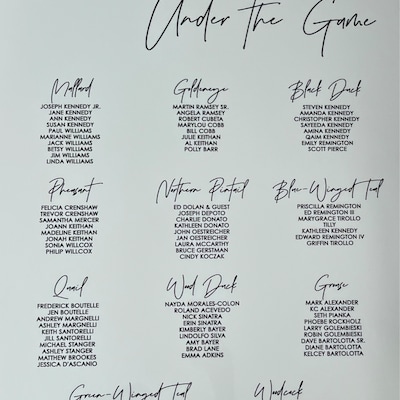 Under the Game
Mallard
JOSEPH KENNEDY JR.
JANE KENNEDY
ANN KENNEDY
SUSAN KENNEDY
PAUL WILLIAMS
MARIANNE WILLIAMS
JACK WILLIAMS
BETSY WILLIAMS
JIM WILLIAMS
LINDA WILLIAMS
Goldeneye
MARTIN RAMSEY SR.
ANGELA RAMSEY
ROBERT CUBETA
MARYLOU COBB
BILL COBB
JULIE KEITHAN
AL KEITHAN
POLLY BARR
Black Duck
STEVEN KENNEDY
AMANDA KENNEDY
CHRISTOPHER KENNEDY
SAYEEDA KENNEDY
AMINA KENNEDY
QAIM KENNEDY
EMILY REMINGTON
SCOTT PIERCE
Pheasant
FELICIA CRENSHAW
TREVOR CRENSHAW
SAMANTHA MERCER
JOANN KEITHAN
MADELINE KEITHAN
JONAH KEITHAN
SONIA WILLCOX
PHILIP WILLCOX
Northern Pintail
ED DOLAN & GUEST
JOSEPH DEPOTO
CHARLIE DONATO
KATHLEEN DONATO
JOHN OESTREICHER
JAN OESTREICHER
LAURA MCCARTHY
BRUCE GERSTMAN
CINDY KOCZAK
Blue-Winged Teal
PRISCILLA REMINGTON
ED REMINGTON III
MARYGRACE TIROLLO
TILLY
KATHLEEN KENNEDY
EDWARD REMINGTON IV
GRIFFIN TIROLLO
Quail
FREDERICK BOUTELLE
JEN BOUTELLE
ANDREW MARGNELLI
ASHLEY MARGNELLI
KEITH SANTORELLI
JILL SANTORELLI
MICHAEL STANGER
ASHLEY STANGER
MATTHEW BROOKES
JESSICA D'ASCANIO
Wood Duck
NAYDA MORALES-COLON
ROLAND ACEVEDO
NICK SINATRA
ERIN SINATRA
KIMBERLY BAYER
LINDOLFO SILVA
AMY BAYER
BRAD LANE
EMMA ADKINS
Grouse
MARK ALEXANDER
KC ALEXANDER
SETH PIANKA
PHOEBE ROCKHOLZ
LARRY GOLEMBIESKI
ROBIN GOLEMBIESKI
DAVE BARTOLOTTA SR.
DIANE BARTOLOTTA
KELCEY BARTOLOTTA
Green-Winged Teal
Woodcock